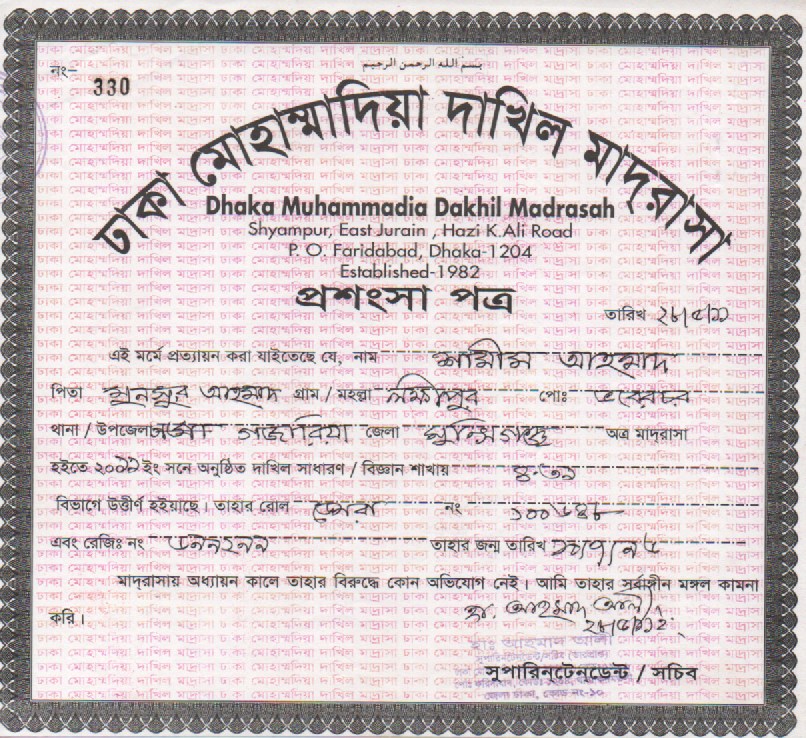 بسم الله الرحمن الرحيم
নং- 330
ঢাকা মোহাম্মাদিয়া দাখিল মাদ্‌রাসা
Dhaka Muhammadia Dakhil Madrasah
Shyampur, East Jurain , Hazi K.Ali Road
P. O. Faridabad, Dhaka-1204
Established-1982
প্রশংসা পত্র
তারিখ ২৮/৫/১১
এই মর্মে প্রত্যায়ন করা যাইতেছে যে, নাম শামীম আহমাদ
পিতা মুনসুর আহমাদ গ্রাম / মহল্লা লক্ষীপুর পোঃ ভবেরচর
থানা / উপজেলা গজারিয়া জেলা মুন্সিগঞ্জ অত্র মাদ্‌রাসা
হইতে ২০১১ ইং সনে অনুষ্ঠিত দাখিল সাধারণ / বিজ্ঞান শাখায় ৪.৩১
বিভাগে উত্তীর্ণ হইয়াছে। তাহার রোল ডেমরা নং ১০০৬৪৮
এবং রেজিঃ নং তাহার জন্ম তারিখ
মাদ্‌রাসায় অধ্যায়ন কালে তাহার বিরুদ্ধে কোন অভিযোগ নেই। আমি তাহার সর্বাঙ্গীন মঙ্গল কামনা
করি।
মা. আহমাদ আলী
হাঃ আহমাদ আলী
সুপারিন্‌টেন্‌ডেন্ট / সচিব